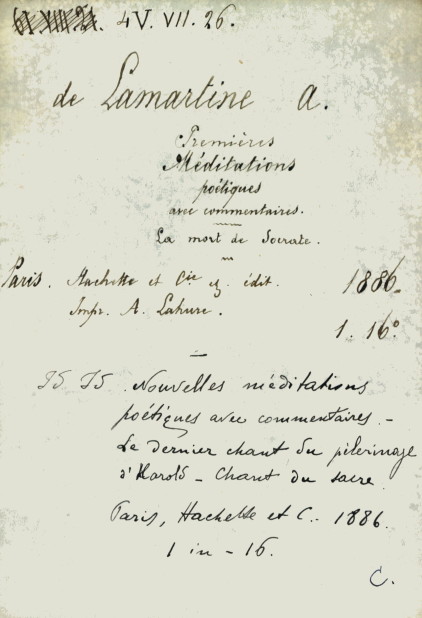 4V. VII. 26.
de Lamartine A.
Premières
Méditations
poétiques
avec commentaires.
La mort de Socrate.
Paris. Hachette et Cie édit. 1886
Impr. A. Lahure. 1. 16°
Nouvelles méditations
poétiques avec commentaires. -
Le dernier chant du pèlerinage
d'Harold - Chant du sacre
Paris, Hachette et C.. 1886.
1 in - 16.
C.